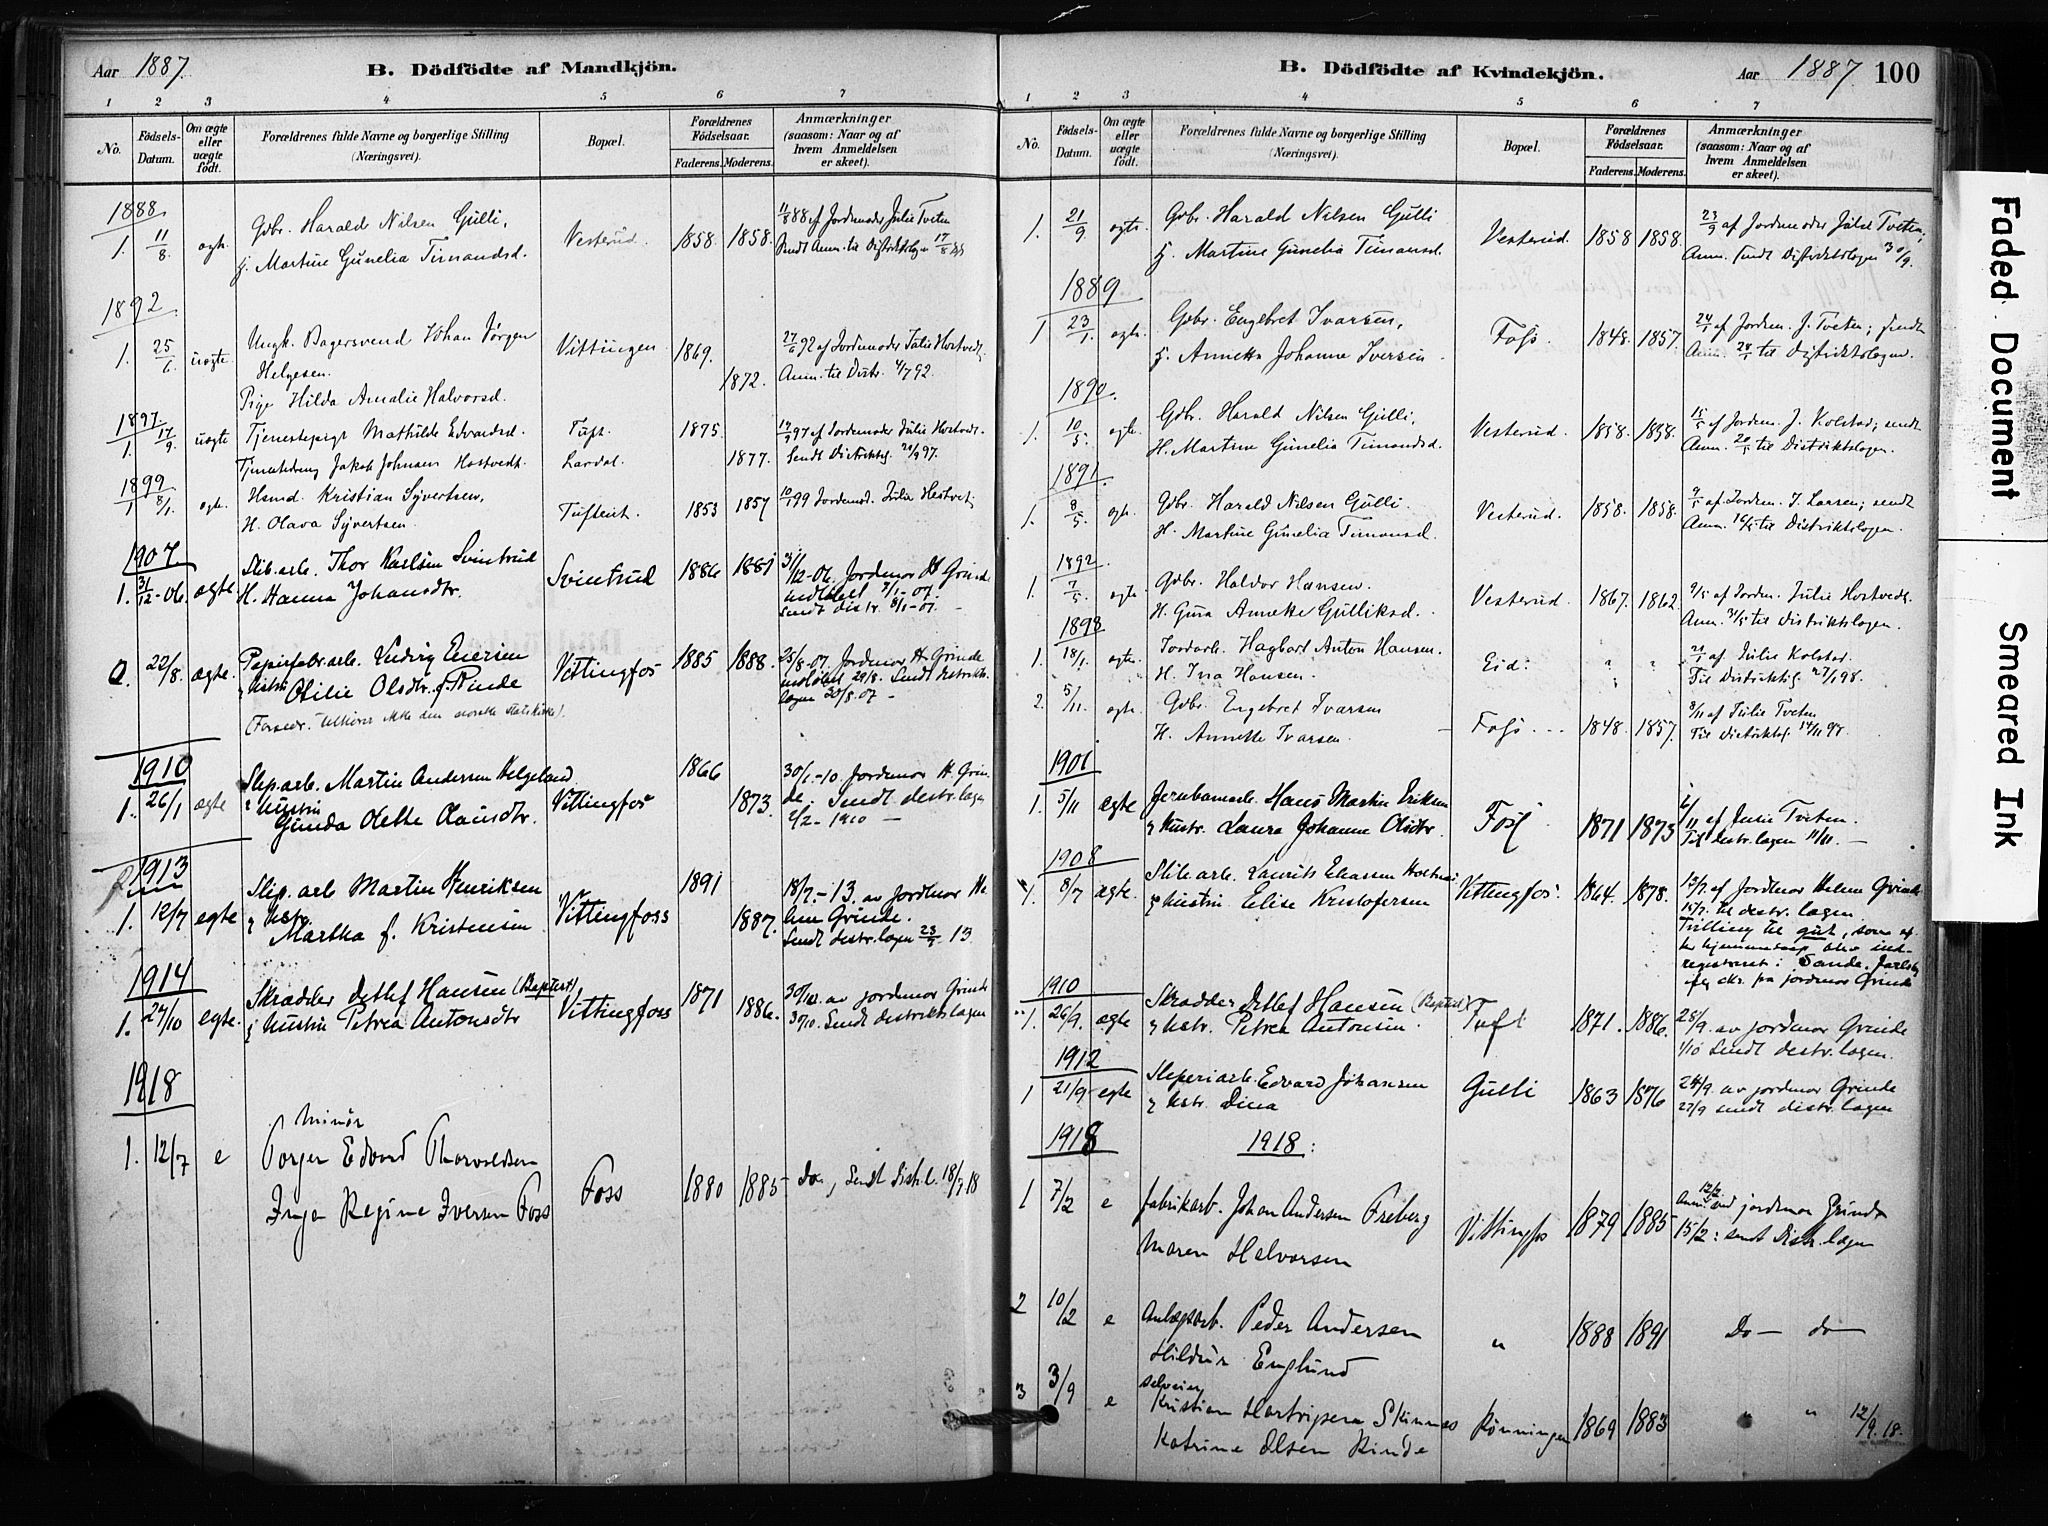 Aar 1887.
B. Dödfödte af Mandkjön.
1 2 3 4 5 6 7
No.
Födsels-Datum.
Om ægte eller uægte födt.
Forældrenes fulde Navne og borgerlige Stilling
(Næringsvei).
Bopæl.
Forældrenes Födselsaar.
Faderens. Moderens.
Anmærkninger
(saasom: Naar og af
hvem Anmeldelsen
er skeet).
1888
1. 11/8. Gdbr. Harald Nilsen Gulli, Vesterud. 1858. 1858. 11/8 88 af Jordemoder Julie Tveten
Martine Gunelia Timandsd. Sendt Anm. til Distriktslægen 17/8 88
1892
1. 25/6 uægte Ungk. Bagersvend Johan Jørgen Vittingen 1869. 27/6 92 af Jordemoder Julie Hostvedt,
Helgesen. 1872. Anm. til Distr. 4/7 92.
Pige Hilda Amalie Halvorsd.
1897
1. 17/9. uægte Tjenestepige Mathilde Edvardsd. Tuft. 1875. 97 af Jordemoder Julie Hostvedt.
Jakob Johnsen Hostvedt. Lardal. 1877. Sendt Distriktslg. 97.
1899
1 8/1. ægte. Kristian Syvertsen, Tufteit. 1853 1857 10/1 99 Jordemod. Julie Hostvet,
H. Olava Syvertsen.
1907.
1. 31/12-06. ægte. Slib.arb. Thor Karlsen Svintrud Svintrud 1886 1881 31/12-06. Jordemor H Grinde
H. Hanna Johansdtr. indløbet 7/1-07.
Sendt distr. 8/1-07. -
22/8. ægte. Papirfabr.arb. Ludvig Vittingfos 1885 1888. 25/8-07. Jordmor H. Grinde
Hustru Otilie Olsdtr. f. Rinde indløbet 29/8. Sendt distrikts-
lægen 30/8.07 -
(Forældr. tilhører ikke den norske statskirke).
1910
1. 26/1 ægte Slip.arb. Martin Andersen Helgeland Vittingfos 1866 30/1-10. Jordemor H. Grin-
Hustru 1873. de. Sendt destr.lægen
Gunda Olette 2/2-1910 -
1913
1. 12/7 egte Slip.arb Martin Henriksen Vittingfoss 1891 18/7.-13. av jordmor He-
Hstr. 1887. lene Grinde.
Martha f. Kristensen Sendt destr.lægen 13.
1914
1. 27/10 egte. Skrædder Detlef Hansen (Baptist) Vittingfoss 1871 1886. 30/10. av jordemor Grinde
Hustru Petrea Antonsdtr 30/10. Sendt distriktslægen
1918
Minør
1. 12/7 e Torger Edvard Thorvaldsen Foss 1880 1885 Do, Sendt Distr.l. 18/7 18
Inga Regine Iversen Foss
B. Dödfödte af Kvindekjön.
Aar 1887 100
1 2 3 4 5 6 7
No.
Födsels-Datum.
Om ægte eller uægte födt.
Forældrenes fulde Navne og borgerlige Stilling
(Næringsvei).
Bopæl.
Forældrenes Födselsaar.
Faderens. Moderens.
Anmærkninger
(saasom: Naar og af
hvem Anmeldelsen
er skeet).
1. 21/9. ægte Gdbr. Harald Nilsen Gulli Vesterud. 1858 1858. 23/9 af Jordemoder Julie Tveten;
Martine Gunelia Timansd. Anm. sendt Distriktslægen 30/9.
1889
1 23/1. ægte. Gdbr. Engebret Ivarsen, Foss. 1848. 1857. 24/1 af Jordem. J. Tveten; sendt
Annette Johanne Iversen. Anm. 28/1 til Distriktslægen.
1890.
1. 10/5. ægte. Gdbr. Harald Nilsen Gulli, Vesterud. 1858. 1858. 15/5 af Jordem. J. Kolstad; sendt
H. Martine Gunelia Timandsd. Anm. 20/5 til Distriktslægen.
1891
1. 8/5. ægte. Gdbr. Harald Nilsen Gulli. Vesterud. 1858. 1858. 9/5 af Jordem. J. Larsen; sendt
H. Martine Gunelia Timansd. Anm. til Distriktslægen.
1892.
1. 7/5. ægte Gdbr. Haldor Hansen. Vesterud. 1867. 1862. 9/5 af Jordem. Julie Hostvedt.
H. Gina Annette Gulliksd. Anm. 31/5 til Distriktslægen.
1898
1. 18/1. ægte Jordarb. Hagbart Anton Hansen. Eid. " " 21/1 af Julie Kolstad.
H. Ina Hansen. Til Distriktslg. 27/1 98.
2. 5/11. ægte Gdbr. Engebret Ivarsen Foss. 1848. 1857. 8/11 af Julie Tveten
H. Annette Ivarsen. Til Distriktslg. 14/11 98.
1901
1. 5/11 ægte Jernbanearb. Hans Martin Eriksen Foss. 1871 1873 6/11 af Julie Tveten.
Hustr. Laura Johanne Olsdtr. Til destr.lægen 11/11. -
1908
1. 8/7 ægte Slibearb. Laurits Eliasen Vittingfos. 1864. 1878. 13/7. af Jordmor Helene Grinde
Hustru Elise Kristofersen 15/7. til destr.lægen.
Tvilling til gut, som ef-
ter hjemmedaap blev ind-
registreret i Sande, Jarlsberg
efter skr. fra jordmor Grinde
1910
1. 26/9. ægte Skrædder Detlef Hansen (Baptist) Tuft 1871. 1886. 28/9. av jordemor Grinde
Hstr. Petrea Antonsen. 1/10 Sendt destr.lægen.
1912
1 21/9 egte Sleperiarb. Edvard Johansen Gulli 1863 1876 24/9. av jordemor Grinde
Hstr. Dina 27/9 sendt distr.lægen
1918 1918:
1 7/2 e fabrikarb. Johan Andersen Freberg Vittingfos 1879 1885 Anm. 12/2 ved jordemor Grinde
Maren Halvorsen 15/2: sendt Distr.lægen
2 10/2 e Anlægsarb. Peder Andersen " 1888 1891 Do - do
Hildur Englund
3 3/9 e selveier
Kristian Skinnes Rønningen 1869 1883 " " 12/9.18.
Katrine Olsen Rinde
Faded Document
Smeared Ink